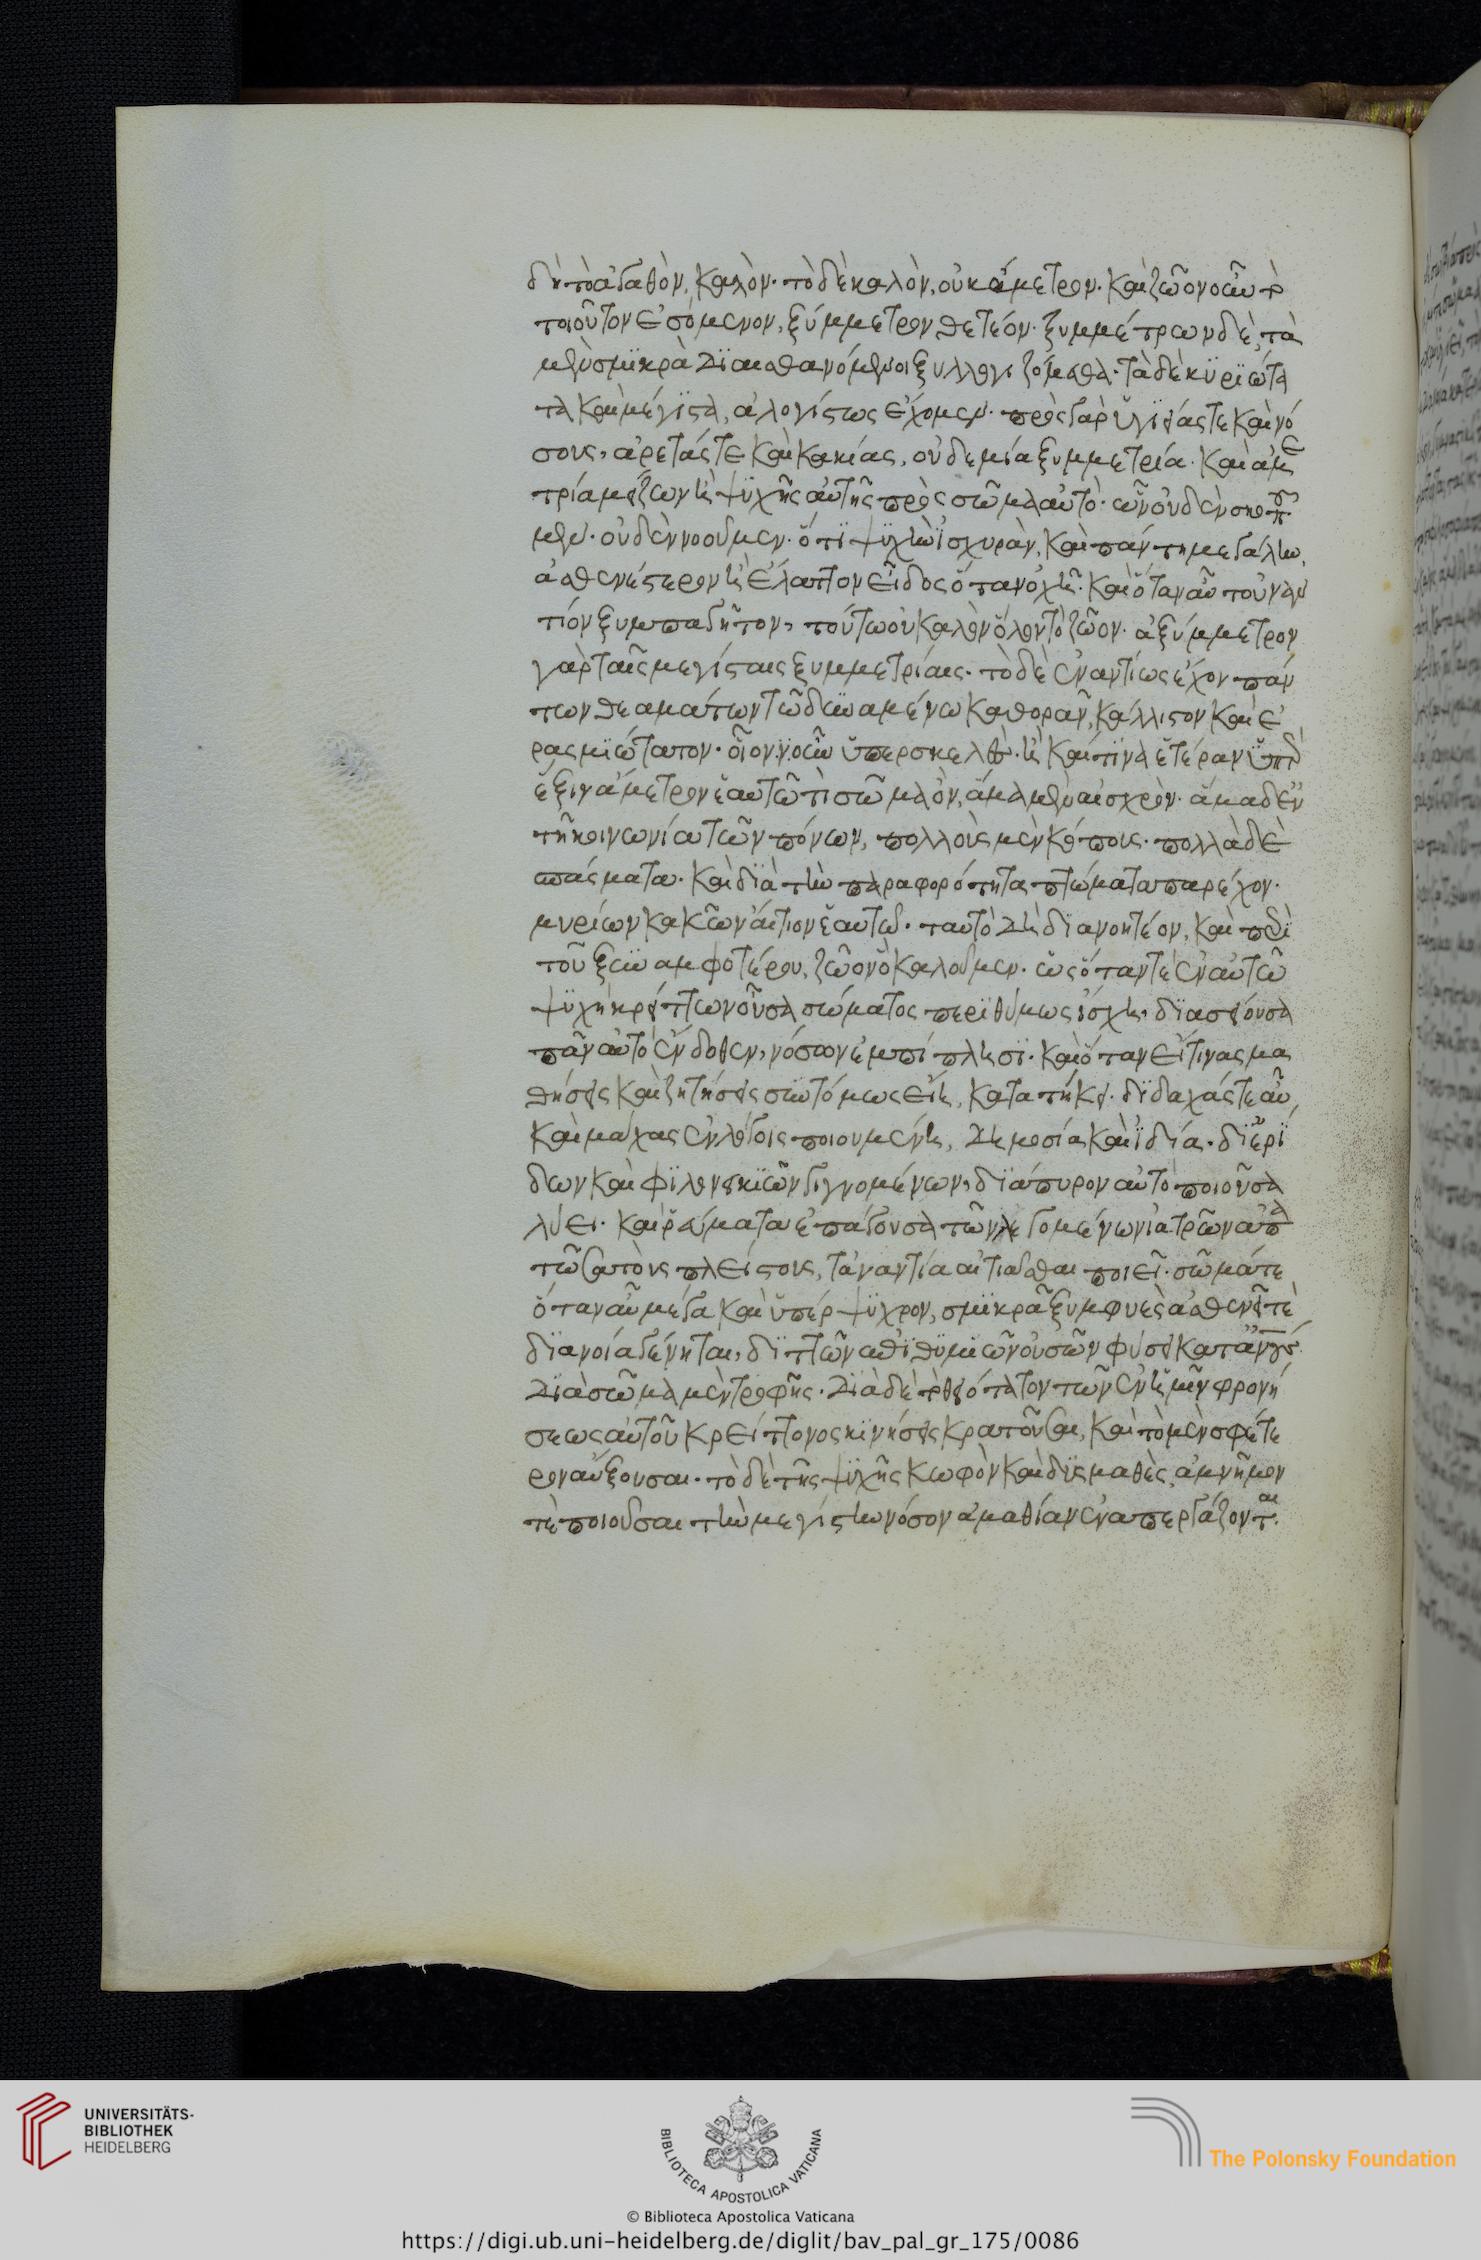 δὴ τὸ ἀγαθὸν, καλὸν· τὸ δὲ καλὸν, οὐκ ἄμετρον· καὶ ζῶον οὖν τὸ
τοιοῦτον ἐσόμενον, ξύμμετρον θετέον· ξυμμέτρων δὲ, τὰ
μὲν σμϊκρὰ διαισθανόμενοι ξυλλογιζόμεθα· τὰ δὲ κϋρϊώτα
τα καὶ μέγϊστα, ἀλογίστως ἔχομεν· πρὸς γὰρ ὑγϊείας τε καὶ νό
σους, ἀρετάς τε καὶ κακίας, οὐδεμία ξυμμετρία· καὶ ἀμε
τρία μείζων ἢ ψϋχῆς αὐτῆς πρὸς σῶμα αὐτὸ· ὧν οὐδὲν σκοποῦ
μεν· οὐδὲν νοοῦμεν· ὅτϊ ψϋχὴν ἰσχυρὰν, καὶ πάντη μεγάλην,
ἀσθενέστερον ἢ ἔλαττον εἶδος ὅταν ὀχῆ· καὶ ὅταν αὖ τοὐναν
τίον ξυμπαγῆτον, τούτω οὐ καλὸν ὅλον τὸ ζῶον· ἀξύμμετρον
γὰρ ταῖς μεγίσταις ξυμμετρίαις· τὸ δὲ ἐναντίως ἔχον πάν
των θεαμάτων τῶ δυναμένω καθορᾶν, κάλλιστον καὶ ἐ
ρασμϊώτατον· οἷον οὖν ὑπερσκελὲς· ἢ καί τϊνα ἑτέραν ὑπὲρ
ἕξιν ἄμετρον ἑαυτῶ τὶ σῶμα ὂν, ἅμα μὲν αἰσχρὸν· ἅμα δ' ἐν
τῆ κοινωνία τῶν πόνων, πολλοὺς μὲν κόπους· πολλὰ δὲ
σπάσματα· καὶ δϊὰ τὴν παραφορότητα πτώματα παρέχον·
μυρίων κακῶν αἴτιον ἑαυτῶ· ταυτὸ δὴ δϊανοητέον, καὶ περὶ
τοῦ ξυναμφοτέρου, ζῶον ὃ καλοῦμεν· ὡς ὅταν τὲ ἐν αὐτῶ
ψϋχὴ κρείττων οὖσα σώματος περϊθύμως ἴσχη, δϊασείουσα
πᾶν αὐτὸ ἔνδοθεν, νόσων ἐμπίπλησϊ· καὶ ὅταν εἴς τινας μα
θήσεις καὶ ζητήσεις συντόμως εἴη, κατατήκει· δϊδαχάς τε αὖ,
καὶ μάχας ἐν λόγοις ποιουμένη, δημοσία καὶ ἰδία· δι' ἐρϊ
δων καὶ φϊλονεικϊῶν γιγνομένων, δϊάπυρον αὐτὸ ποιοῦσα
λύει· καὶ ῥεύματα ἐπάγουσα τῶν λεγομένων ἰατρῶν ἀπα
τῶσα τοὺς πλείστους, τἀναντία αἰτιᾶσθαι ποιεῖ· σῶμά τε
ὅταν αὖ μέγα καὶ ὑπέρψϋχρον, σμϊκρᾶ ξυμφυὲς ἀσθενεῖ τὲ
δϊανοία γένηται, διττῶν ἐπϊθϋμϊῶν οὐσῶν φύσει κατ' ἀνους,
δϊὰ σῶμα μὲν τροφῆς· δϊὰ δὲ τὸ θειότατον τῶν ἐν ἡμῖν φρονή
σεως αὐτοῦ κρείττονος κϊνήσεις κρατοῦσαι, καὶ τὸ μὲν σφέτε
ρον αὔξουσαι· τὸ δὲ τῆς ψϋχῆς κωφὸν καὶ δϋσμαθὲς, ἄμνημον
τὲ ποιοῦσαι τὴν μεγίστην νόσον ἀμαθίαν ἐναπεργάζονται.
UNIVERSITÄTS-
BIBLIOTHEK
HEIDELBERG
BIBLIOTECA APOSTOLICA VATICANA
The Polonsky Foundation
© Biblioteca Apostolica Vaticana
https://digi.ub.uni-heidelberg.de/diglit/bav_pal_gr_175/0086